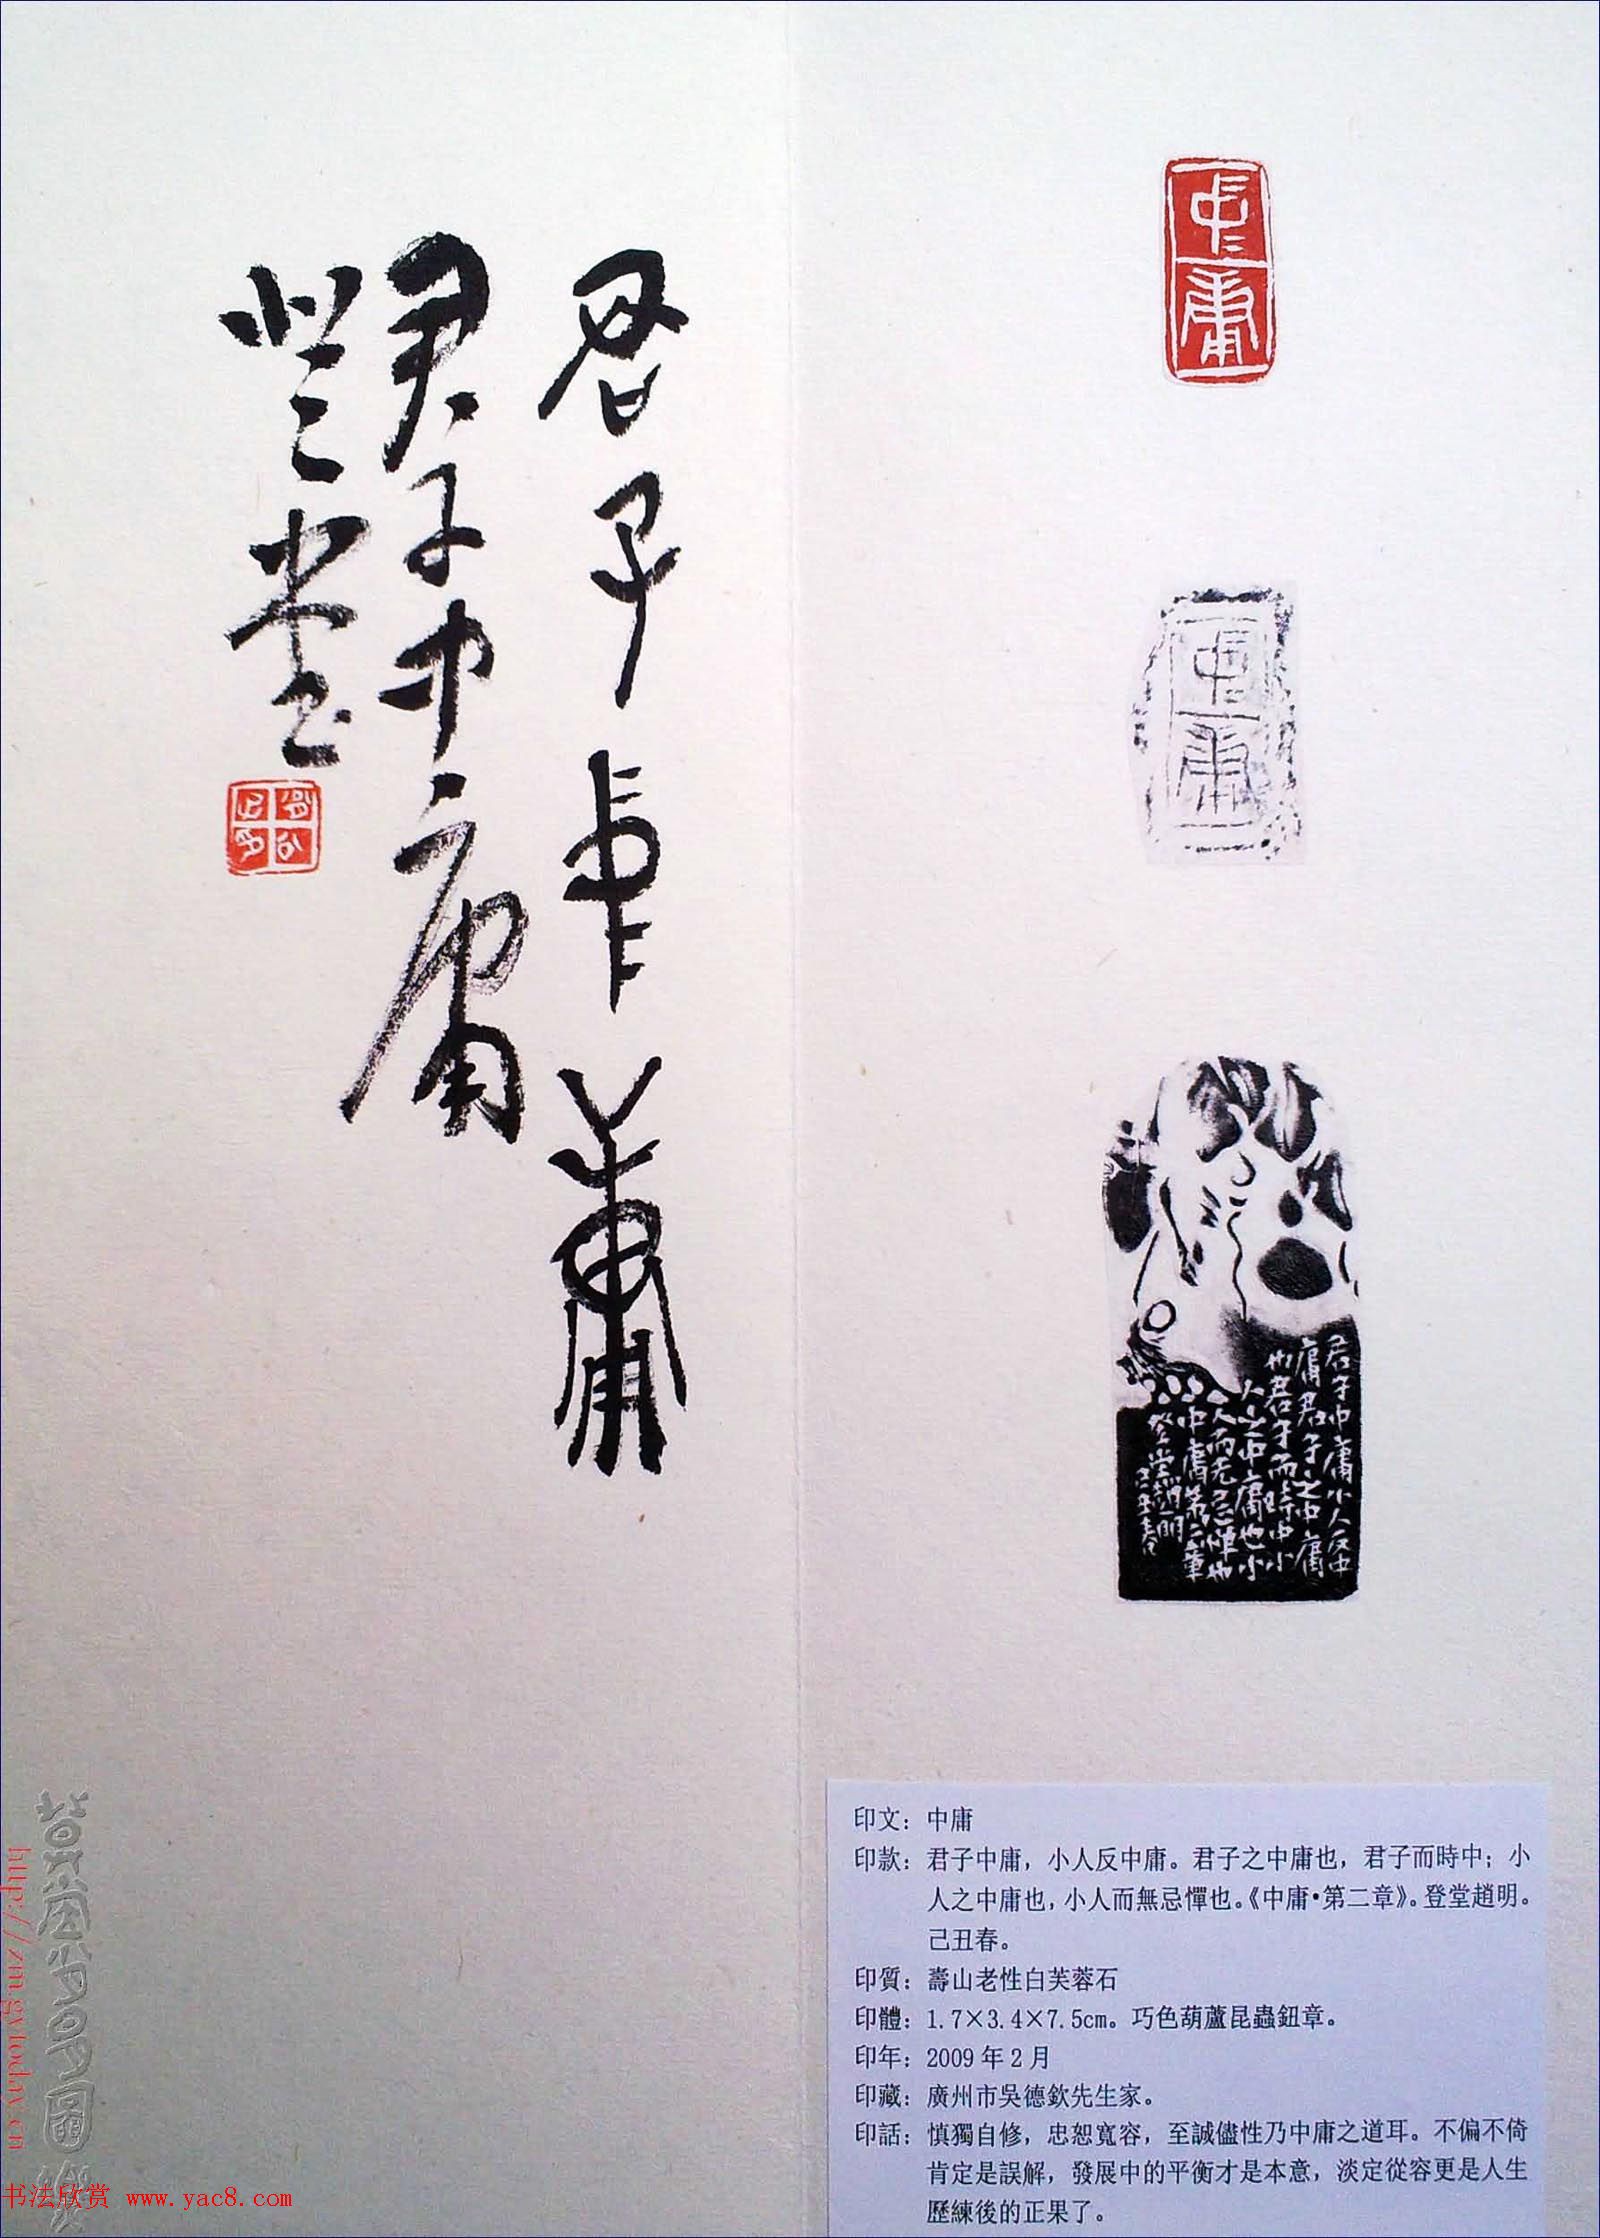 中庸
君子中庸
君子中庸
登堂
中庸
君子中庸小人反中
庸君子之中庸
也君子而時中小
人之中庸也小
人而无忌憚也
中庸第二章
登堂趙明
己丑春
印文：中庸
印款：君子中庸，小人反中庸。君子之中庸也，君子而時中；小
人之中庸也，小人而無忌憚也。《中庸·第二章》。登堂趙明。
己丑春。
印質：壽山老性白芙蓉石
印體：1.7×3.4×7.5cm。巧色葫蘆昆蟲鈕章。
印年：2009 年 2 月
印藏：廣州市吳德欽先生家。
印話：慎獨自修，忠恕寬容，至誠儘性乃中庸之道耳。不偏不倚
肯定是誤解，發展中的平衡才是本意，淡定從容更是人生
歷練後的正果了。
http://zmgytoday.cn
书法欣赏 www.yac8.com